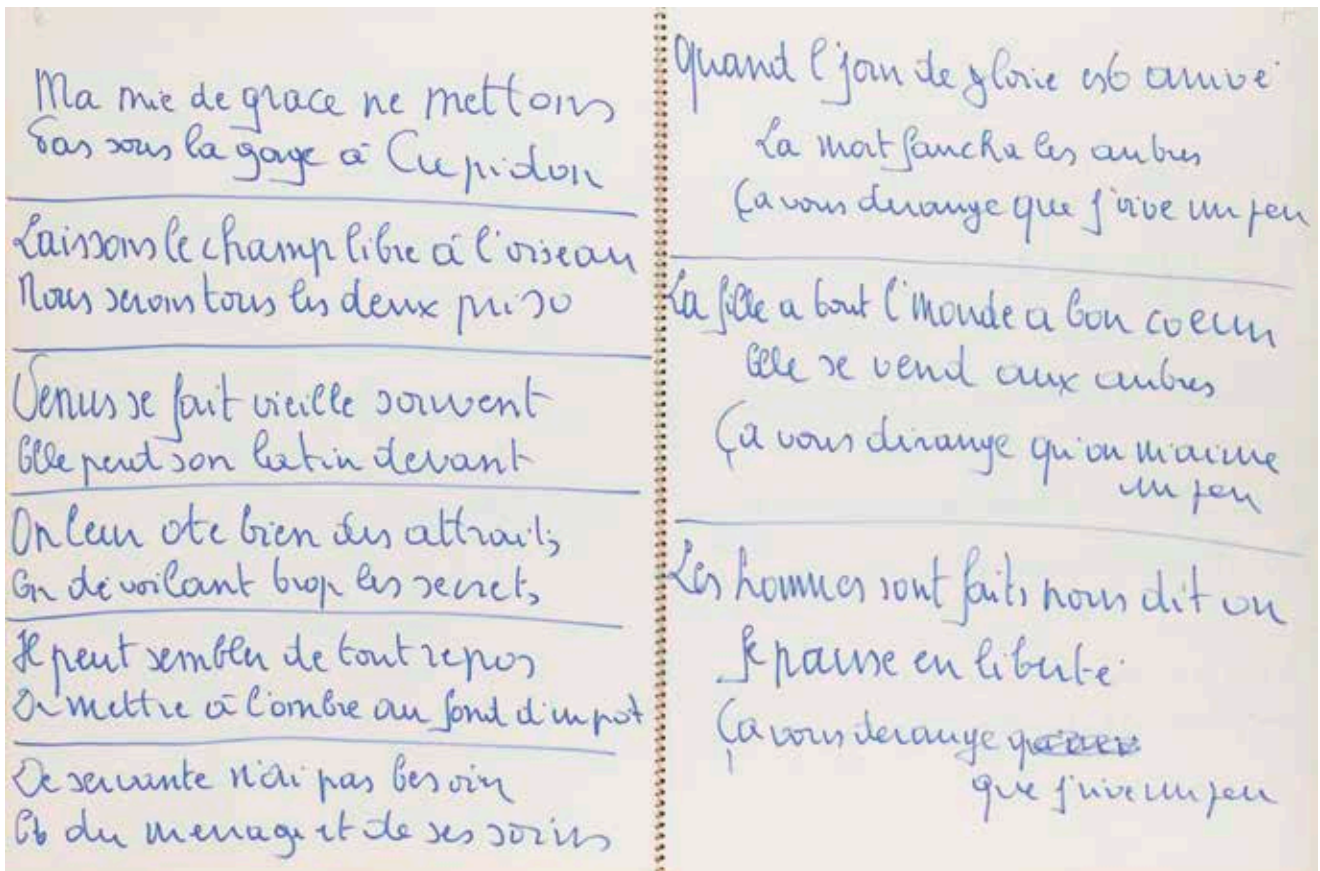 Ma mie de grace ne mettons
Pas sous la gorge à Cupidon
Laissons le champ libre à l'oiseau
Nous serons tous les deux priso
Venus se fait vieille souvent
Elle perd son latin devant
On leur ote bien des attraits
En dévoilant trop les secrets
Il peut sembler de tout repos
De mettre à l'ombre au fond d'un pot
De servante n'ai pas besoin
Et du menage et de ses soins
Quand l'jour de gloire est arrivé
La mort faucha les autres
Ça vous derange que j'vive un peu
La fille a tout l'monde a bon coeur
Elle se vend aux autres
Ça vous dérange qu'on m'aime
un peu
Les hommes sont faits nous dit on
Je pause en liberté
Ça vous derange
que j'vive un peu